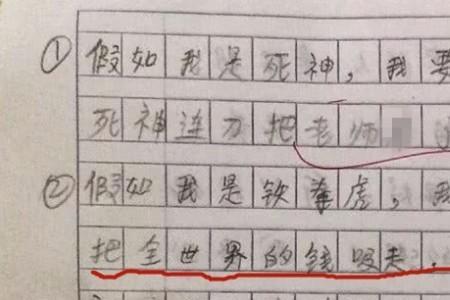 ① 假如我是死神，我要
死神连刀把老师
② 假如我是铁拳虎，我
把全世界的钱吸